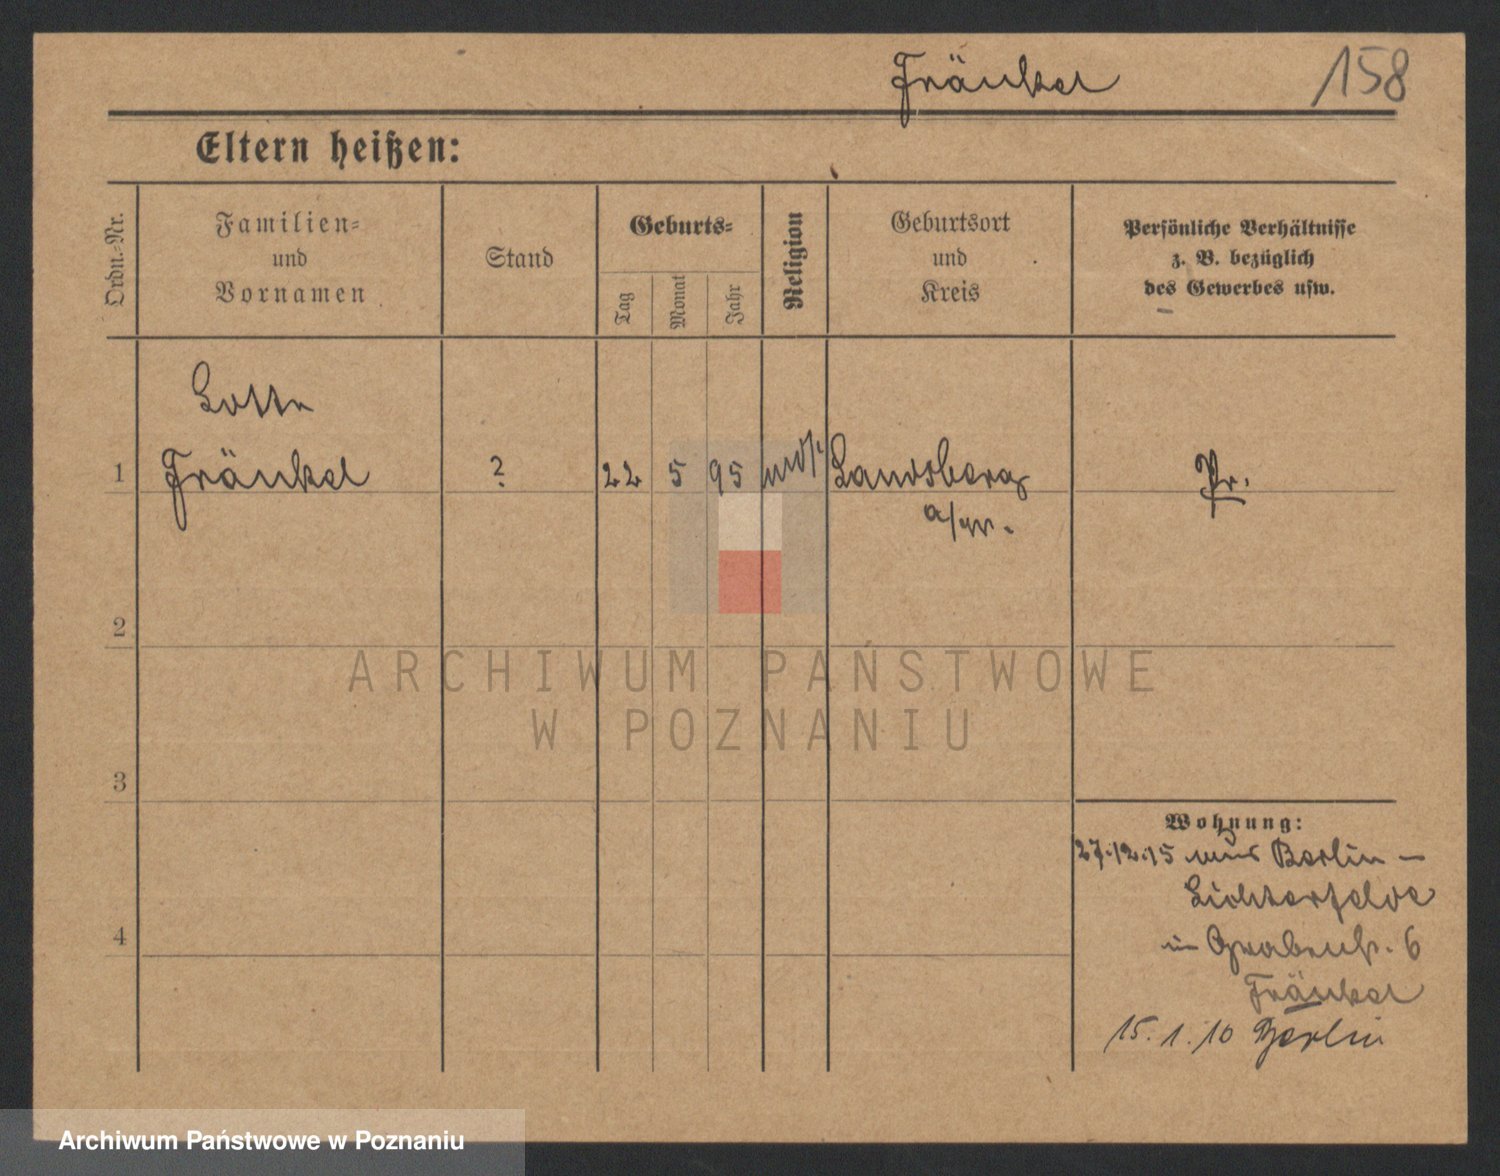 Fränkel 158
Eltern heißen:
Ordn.-Nr.
Familien-
und
Vornamen
Stand
Geburts-
Tag
Monat
Jahr
Religion
Geburtsort
und
Kreis
Persönliche Verhältnisse
z. B. bezüglich
des Gewerbes usw.
Lotte
1 Fränkel ? 22 5 95 mos. Landsberg Pr.
a/W.
2
3
4
Wohnung:
27.12.15 aus Berlin –
Lichterfelde
in Grabenstr. 6
Fränkel
15. 1. 16 Berlin
ARCHIWUM PAŃSTWOWE
W POZNANIU
Archiwum Państwowe w Poznaniu